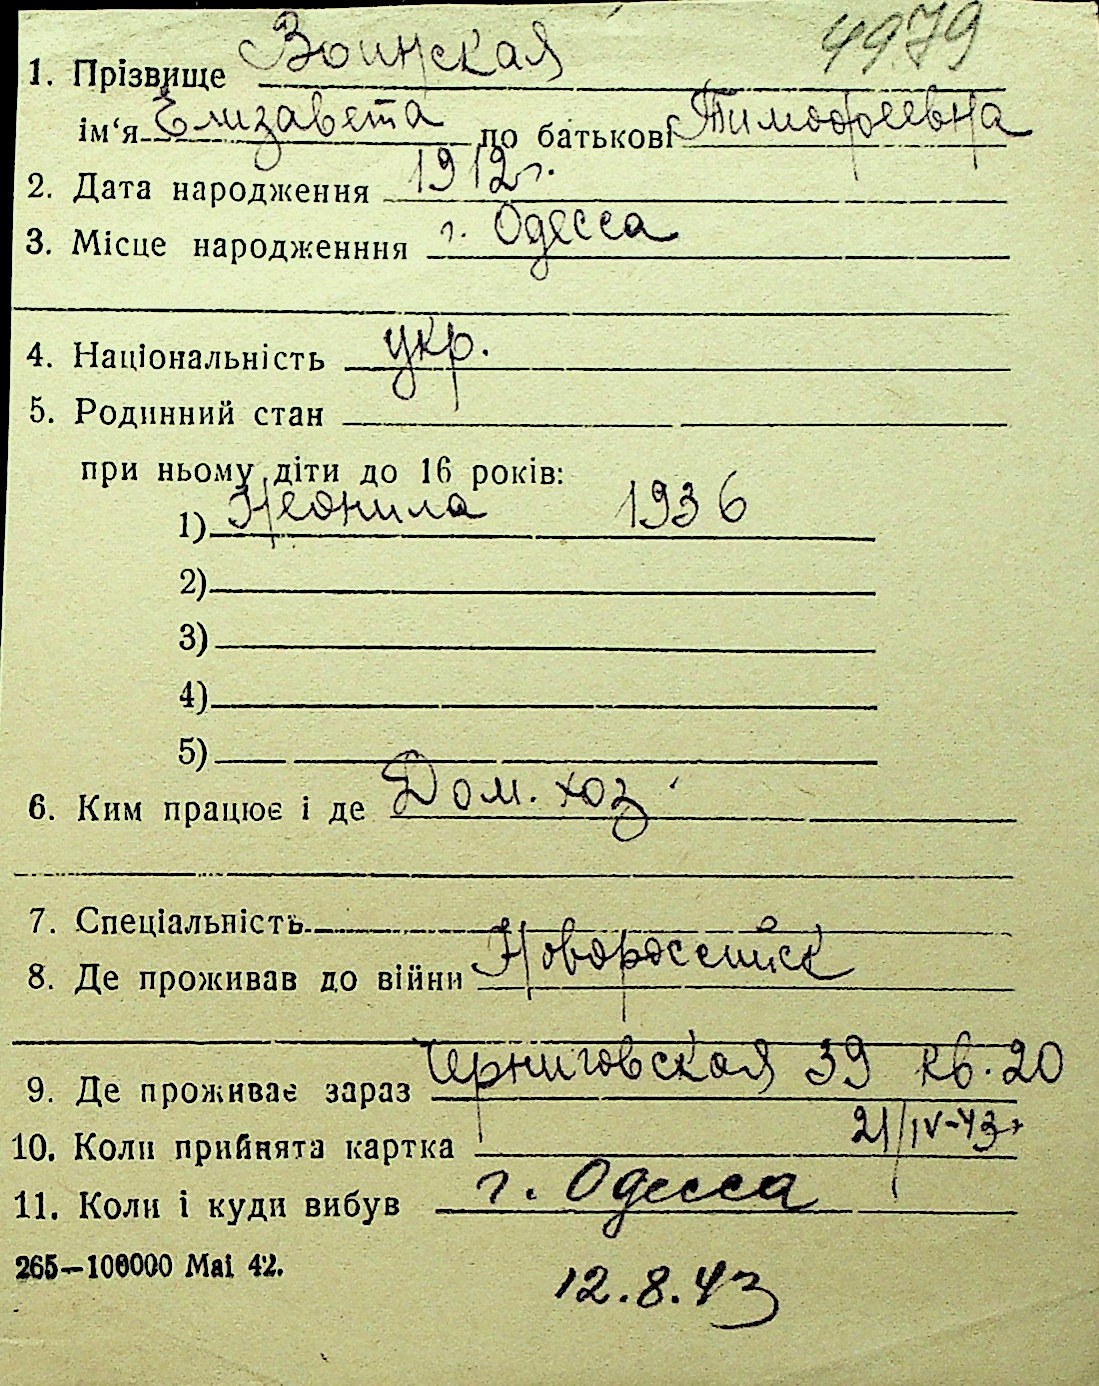 4979
1. Прізвище Воинская
ім‘я Елизавета по батькові Тимофеевна
2. Дата народження 1912 г.
3. Місце народженння г. Одесса
4. Національність укр.
5. Родинний стан
при ньому діти до 16 років:
1) Неонила 1936
2)
3)
4)
5)
6. Ким працює і де Дом. хоз.
7. Спеціальність
8. Де проживав до війни Новороссийск
9. Де проживає зараз Черниговская 39 кв. 20
10. Коли прийнята картка 21/IV-43г.
11. Коли і куди вибув г. Одесса
265—100000 Mai 42.
12.8.43